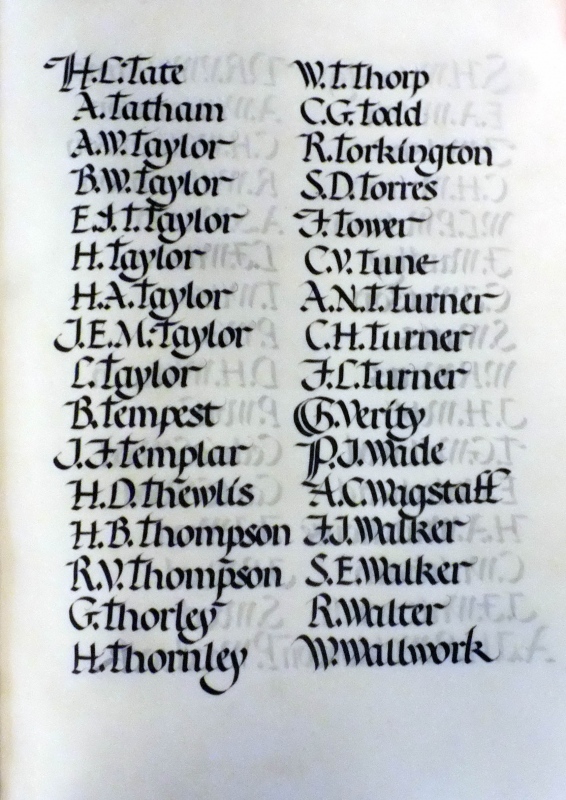 H.L.Tate
A.Tatham
A.W.Taylor
B.W.Taylor
E.J.T.Taylor
H.Taylor
H.A.Taylor
J.E.M.Taylor
L.Taylor
B.Tempest
J.F.Templar
H.D.Thewlis
H.B.Thompson
R.V.Thompson
G.Thorley
H.Thornley
W.T.Thorp
C.G.Todd
R.Torkington
S.D.Torres
F.Tower
C.V.Tune
A.N.T.Turner
C.H.Turner
F.L.Turner
G.Verity
P.J.Wade
A.C.Wagstaff
F.J.Walker
S.E.Walker
R.Walter
W.Wallwork